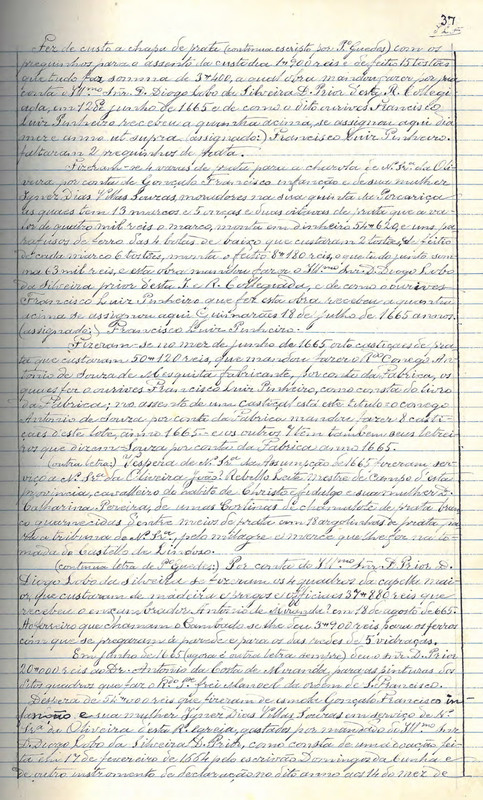 37
Fez de custo a chapa de prata (continua escripto por Pe Guedes) com os
preguinhos para o assento da custodia 1$900 reis e de feitio 15 tostões
que tudo faz somma de 3$400, a qual obra mandou fazer por sua
conta o Illmo Snr. D. Diogo Lobo da Silveira D. Prior d'esta R. Collegi-
ada, em 12 de junho de 1665 e de como o dito ourives Francisco
Luiz Pinheiro recebeu a quantia acima, se assignou aqui dia
mez e anno ut supra (assignado:) Francisco Luiz Pinheiro.
faltaram 2 preguinhos de prata.
Fizeram-se 4 varas de prata para a charola de N. Sra da Oli-
veira por conta de Gonçalo Francisco infanção e de sua mulher
Ignez Dias Villas Louzas, moradores na sua quinta da
as quaes tem 13 marcos e 5 onças e duas oitavas de prata que a va-
lor de quatro mil reis o marco, monta em dinheiro 54$620, e uns pa-
rafusos de ferro das 4 bolas de baixo que custaram 2 tostões, de feitio
de cada marco 6 tostões, monta o feitio 8$180 reis, o que tudo junto som-
ma 63 mil reis, e esta obra mandou fazer o Illmo Snr. D. Diogo Lobo
da Silveira prior d'esta I. e R. Collegiada, e de como o ourives
Francisco Luiz Pinheiro que fez esta obra recebeu a quantia
acima se assignou aqui Guimarães 18 de julho de 1665 annos.
(assignado:) Francisco Luiz Pinheiro.
Fizeram-se no mez de junho de 1665 oito castiçaes de pra-
ta que custaram 50$120 reis, que mandou fazer o Rdo Conego An-
tonio de Souza de Mesquita fabricante, por conta da Fabrica, os
quaes fez o ourives Francisco Luiz Pinheiro, como consta do livro
da Fabrica; no assento de um castiçal está este titulo: o conego
Antonio de Souza por conta da Fabrica mandou fazer 8 casti-
çaes d'este lote, anno 1665 — e os outros 7 tem tambem seus letrei-
ros que dizem — Souza por conta da Fabrica anno 1665.
(outra letra) Vespera de N. Sra da Assumpção de 1665 fizeram ser-
viço a N. Sra da Oliveira João Rebello Leite mestre de campo d'esta
provincia, cavalleiro do habito de Christo e fidalgo e sua mulher D.
Catharina Pereira, de umas cortinas de chamalote de prata bran-
co guarnecidas d'entre meios de prata com 18 argolinhas de prata pa-
ra a tribuna de N. Sra, pelo milagre e mercê que lhe fez na to-
mada do Castello da Lindoso.
(continua letra de Pe Guedes:) Por conta do Illmo Snr. D. Prior D.
Diogo Lobo da Silveira se fizeram os 4 quadros da capella mai-
or, que custaram de madeira e pregos e officiaes 37$880 reis que
recebeu o ensamblador Antonio de Miranda? em 18 de agosto de 665.
Ao ferreiro que chamam o Cambado se lhe deu 3$900 reis para os ferros
com que se pregaram á parede e para os das redes de 5 vidraças.
Em junho de 1665 (agora é outra letra sempre) deu o snr. D. Prior
20$000 reis ao Dr. Antonio da Costa de Miranda, para as pinturas dos
ditos quadros que faz o Rdo Pe frei Manoel da ordem de S. Francisco.
Despeza de 55$000 reis que fizeram de esmola Gonçalo Francisco in-
fanção e sua mulher Ignez Dias Villas Louzas em serviço de N.
Sra da Oliveira d'esta R. igreja, gastados por mandado do Illmo Snr.
D. Diogo Lobo da Silveira D. Prior, como consta de uma doação fei-
ta em 17 de fevereiro de 1664 pelo escrivão Domingos da Cunha e
de outro instrumento de declaração no dito anno aos 14 do mez de